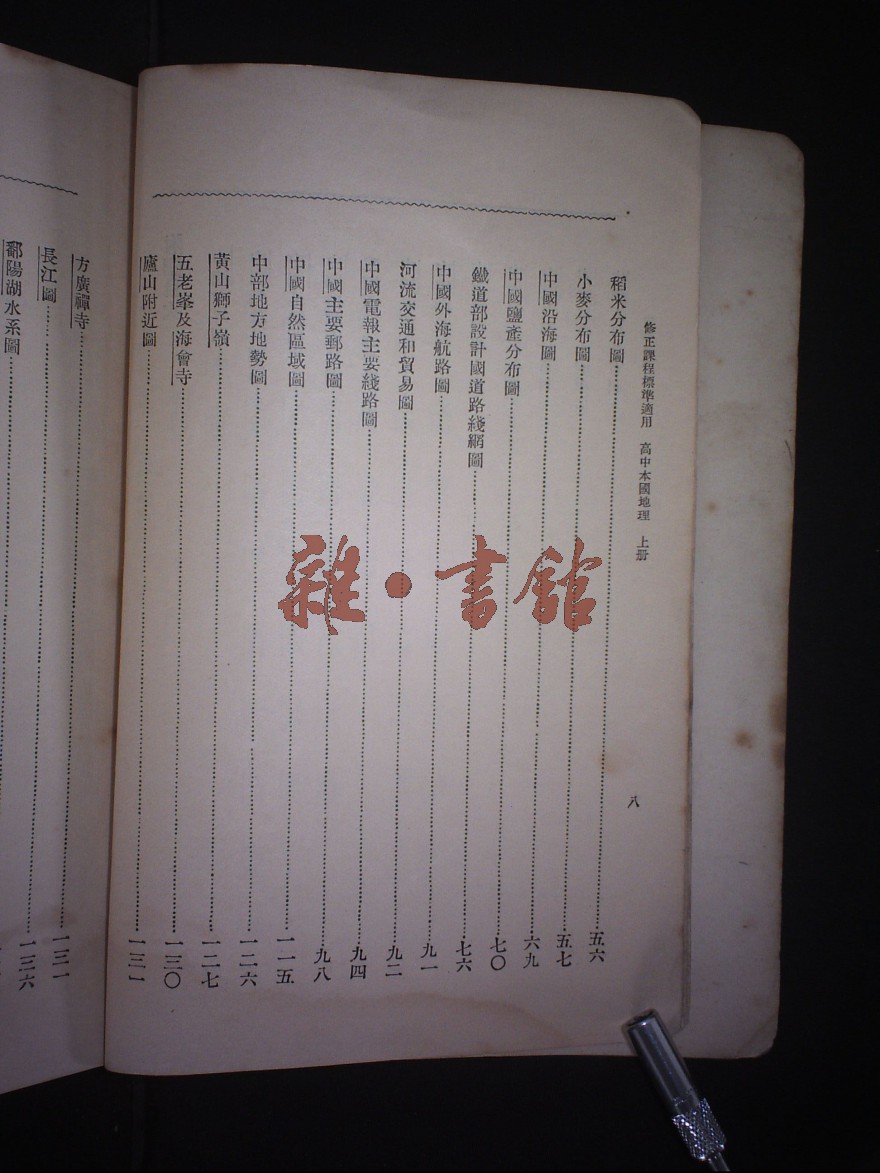 修正課程標準適用 高中本國地理 上册
八
稻米分布圖……五六
小麥分布圖……五七
中國沿海圖……六九
中國鹽產分布圖……七〇
鐵道部設計國道路綫網圖……七六
中國外海航路圖……九一
河流交通和貿易圖……九二
中國電報主要綫路圖……九四
中國主要郵路圖……九八
中國自然區域圖……一一五
中部地方地勢圖……一二六
黃山獅子嶺……一二七
五老峯及海會寺……一三〇
廬山附近圖……一三一
方廣禪寺……一三一
長江圖……一三六
鄱陽湖水系圖
雜·書館